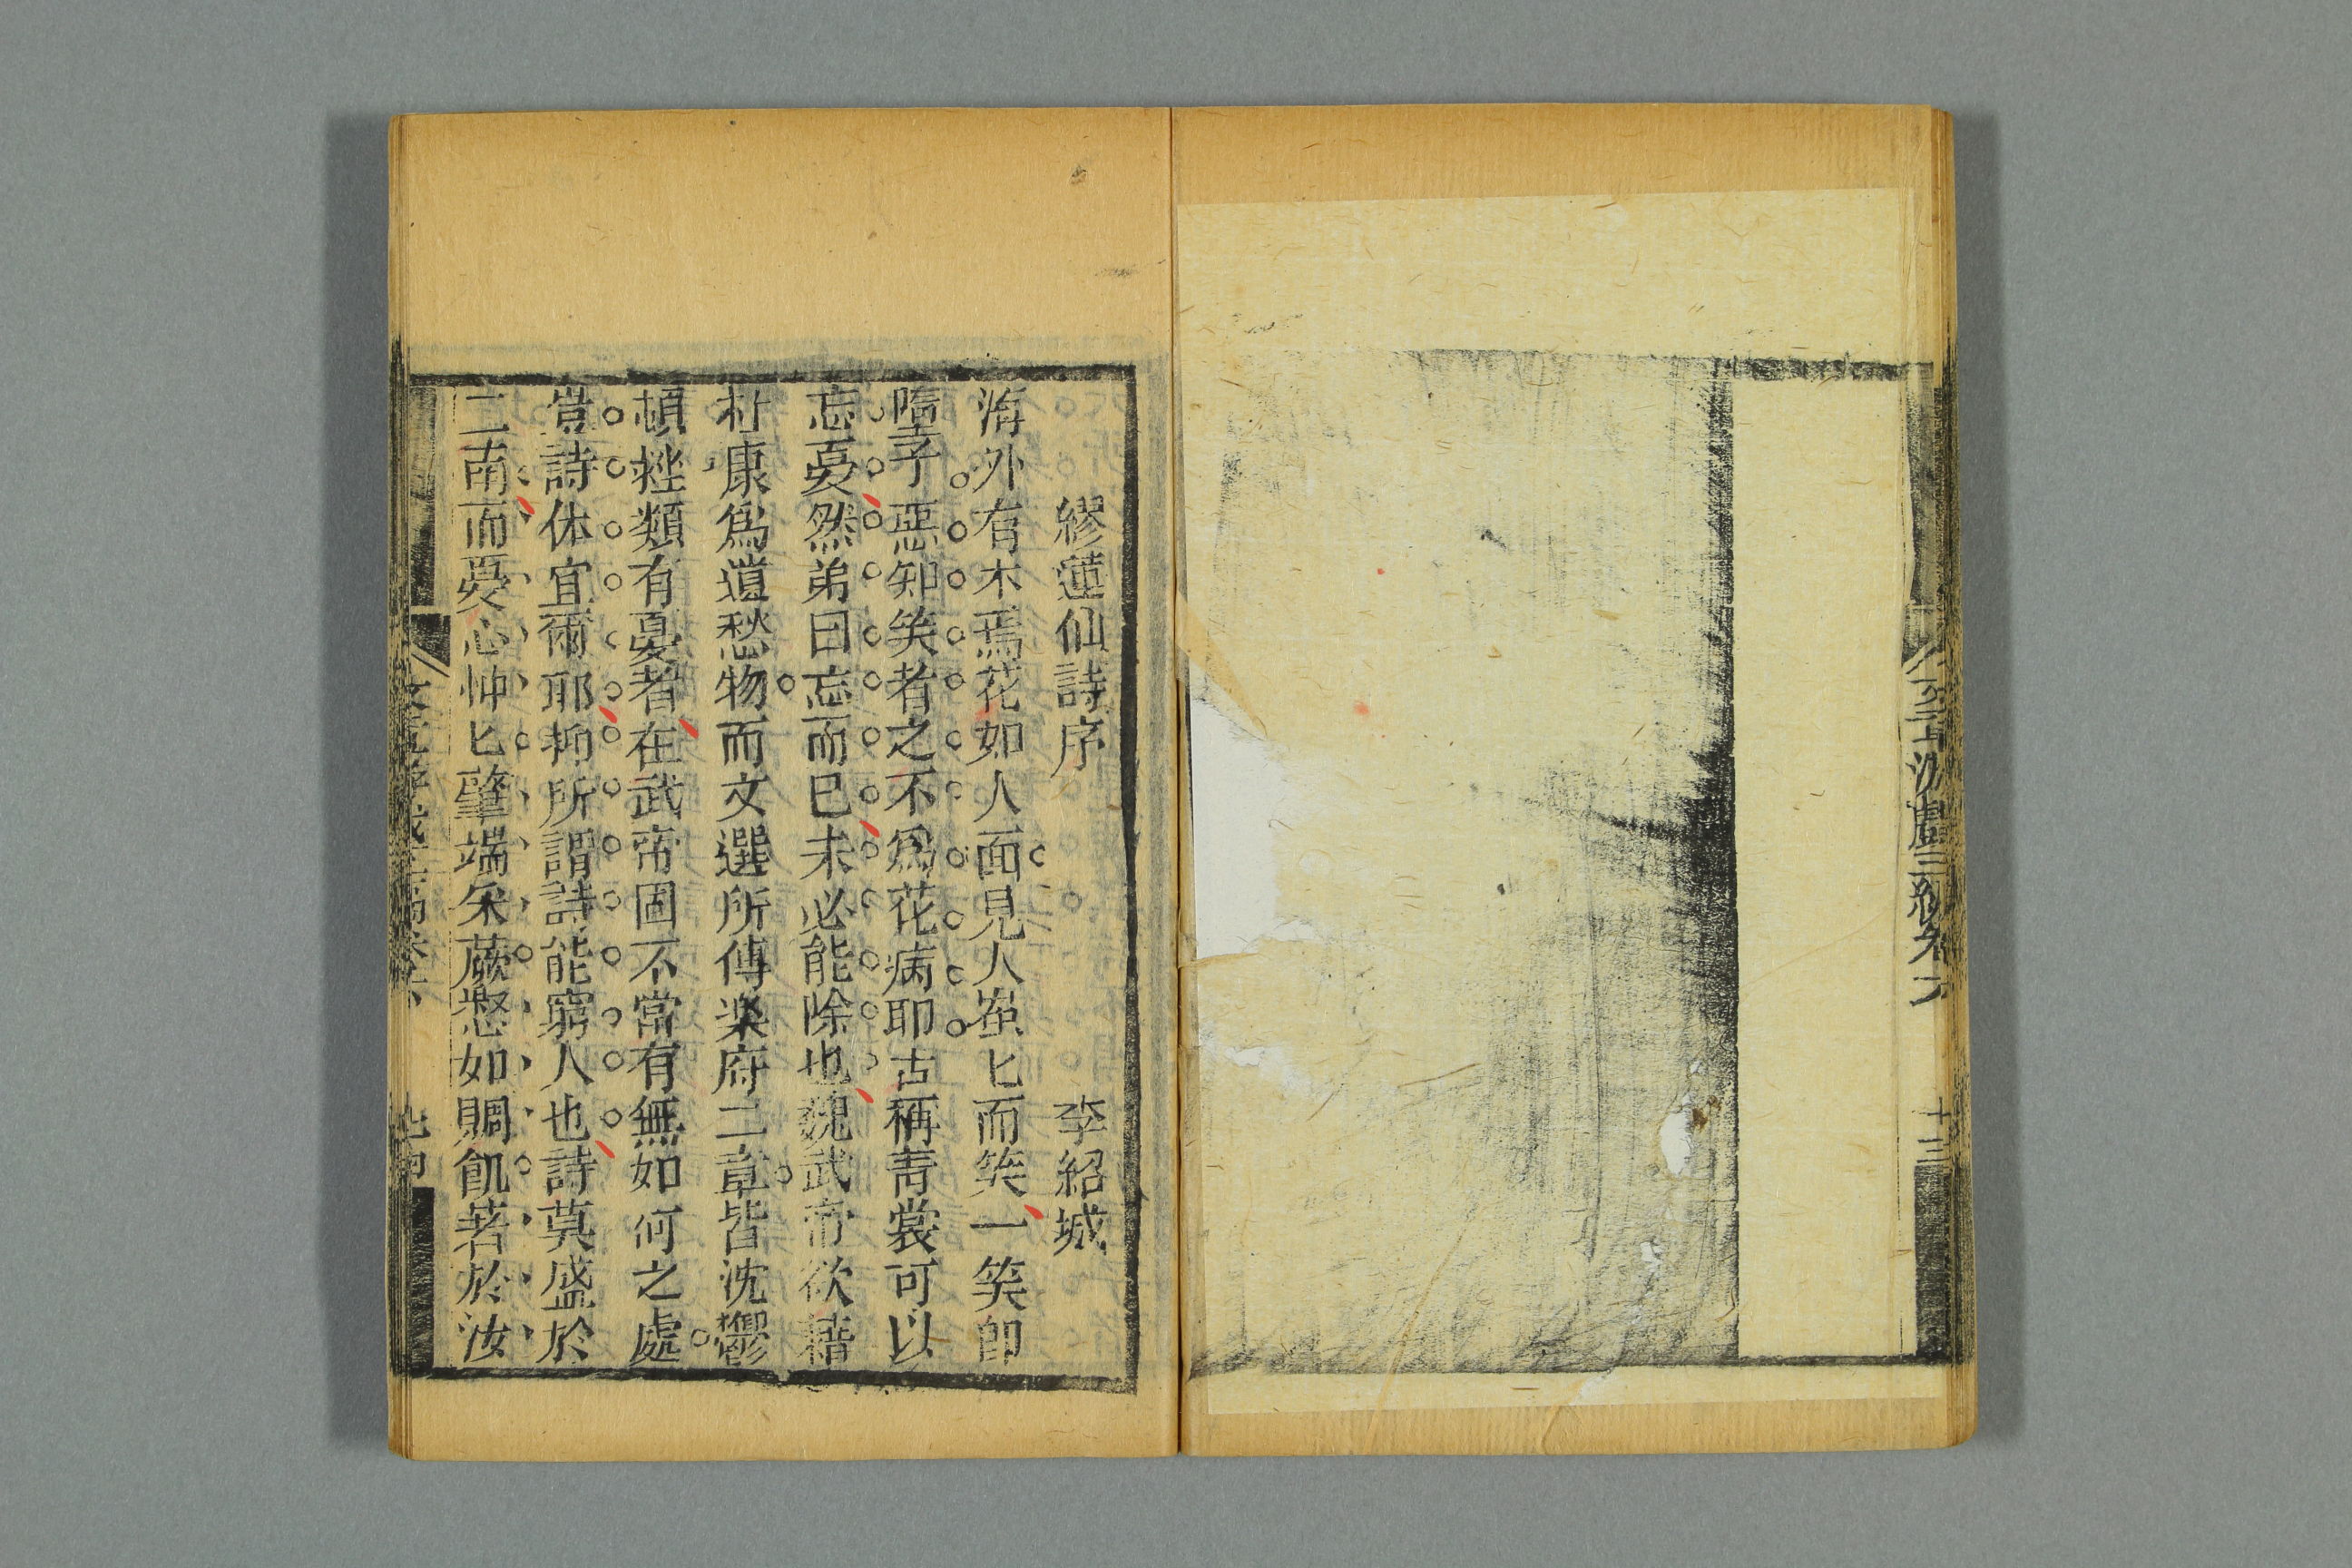 繆蓮仙詩序　李紹城
海外有木焉花如人面見人輒匕而笑一笑即
墮予惡知笑者之不爲花病耶古稱青裳可以
忘憂然弟曰忘而已未必能除也魏武帝欲藉
杜康爲遣愁物而文選所傳樂府二章皆沈鬱
頓挫類有憂者在武帝固不當有無如何之處
豈詩体宜爾耶抑所謂詩能窮人也詩莫盛於
二南而憂心忡匕肇端采蕨惄如賙飢著於汝
十三